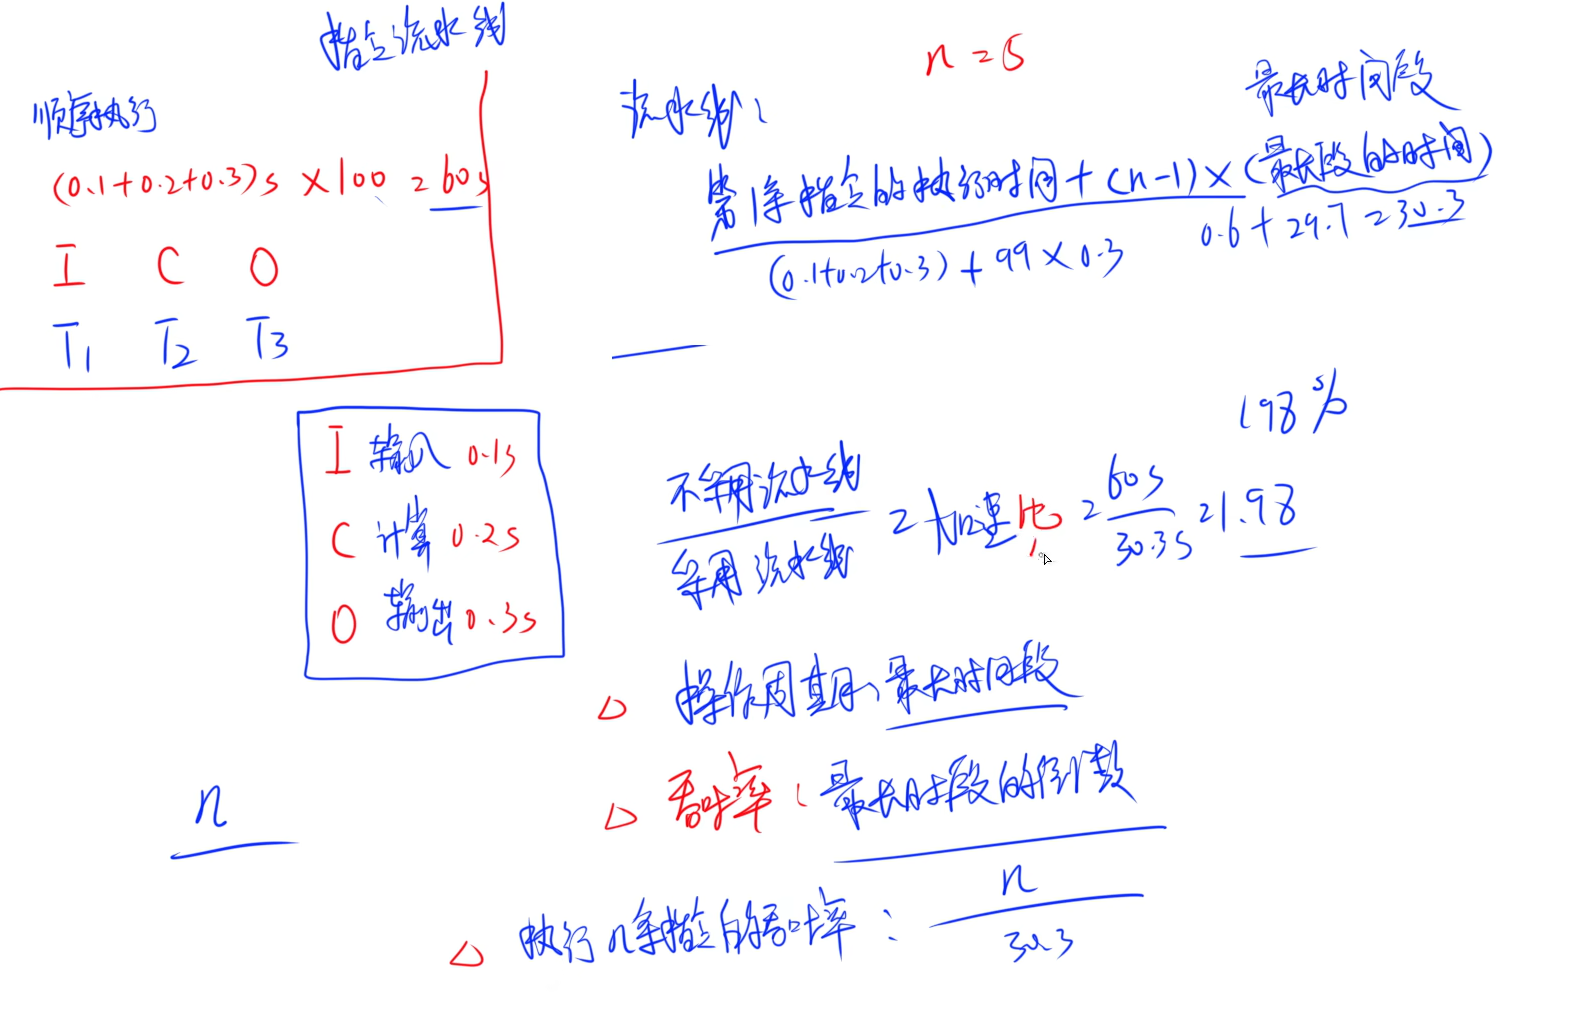 指令流水线
顺序执行
(0.1+0.2+0.3)s ×100 = 60s
I C O
T1 T2 T3
I 输入 0.1s
C 计算 0.2s
O 输出 0.3s
n
n = 5
流水线:
最长时间段
第1条指令的执行时间 + (n-1) × (最长段的时间)
(0.1+0.2+0.3) + 99 × 0.3
0.6 + 29.7 = 30.3
198%
不采用流水线
采用流水线
= 加速比 = 60s / 30.3s = 1.98
△ 操作周期: 最长时间段
△ 吞吐率: 最长时段的倒数
△ 执行n条指令的吞吐率: n / 30.3